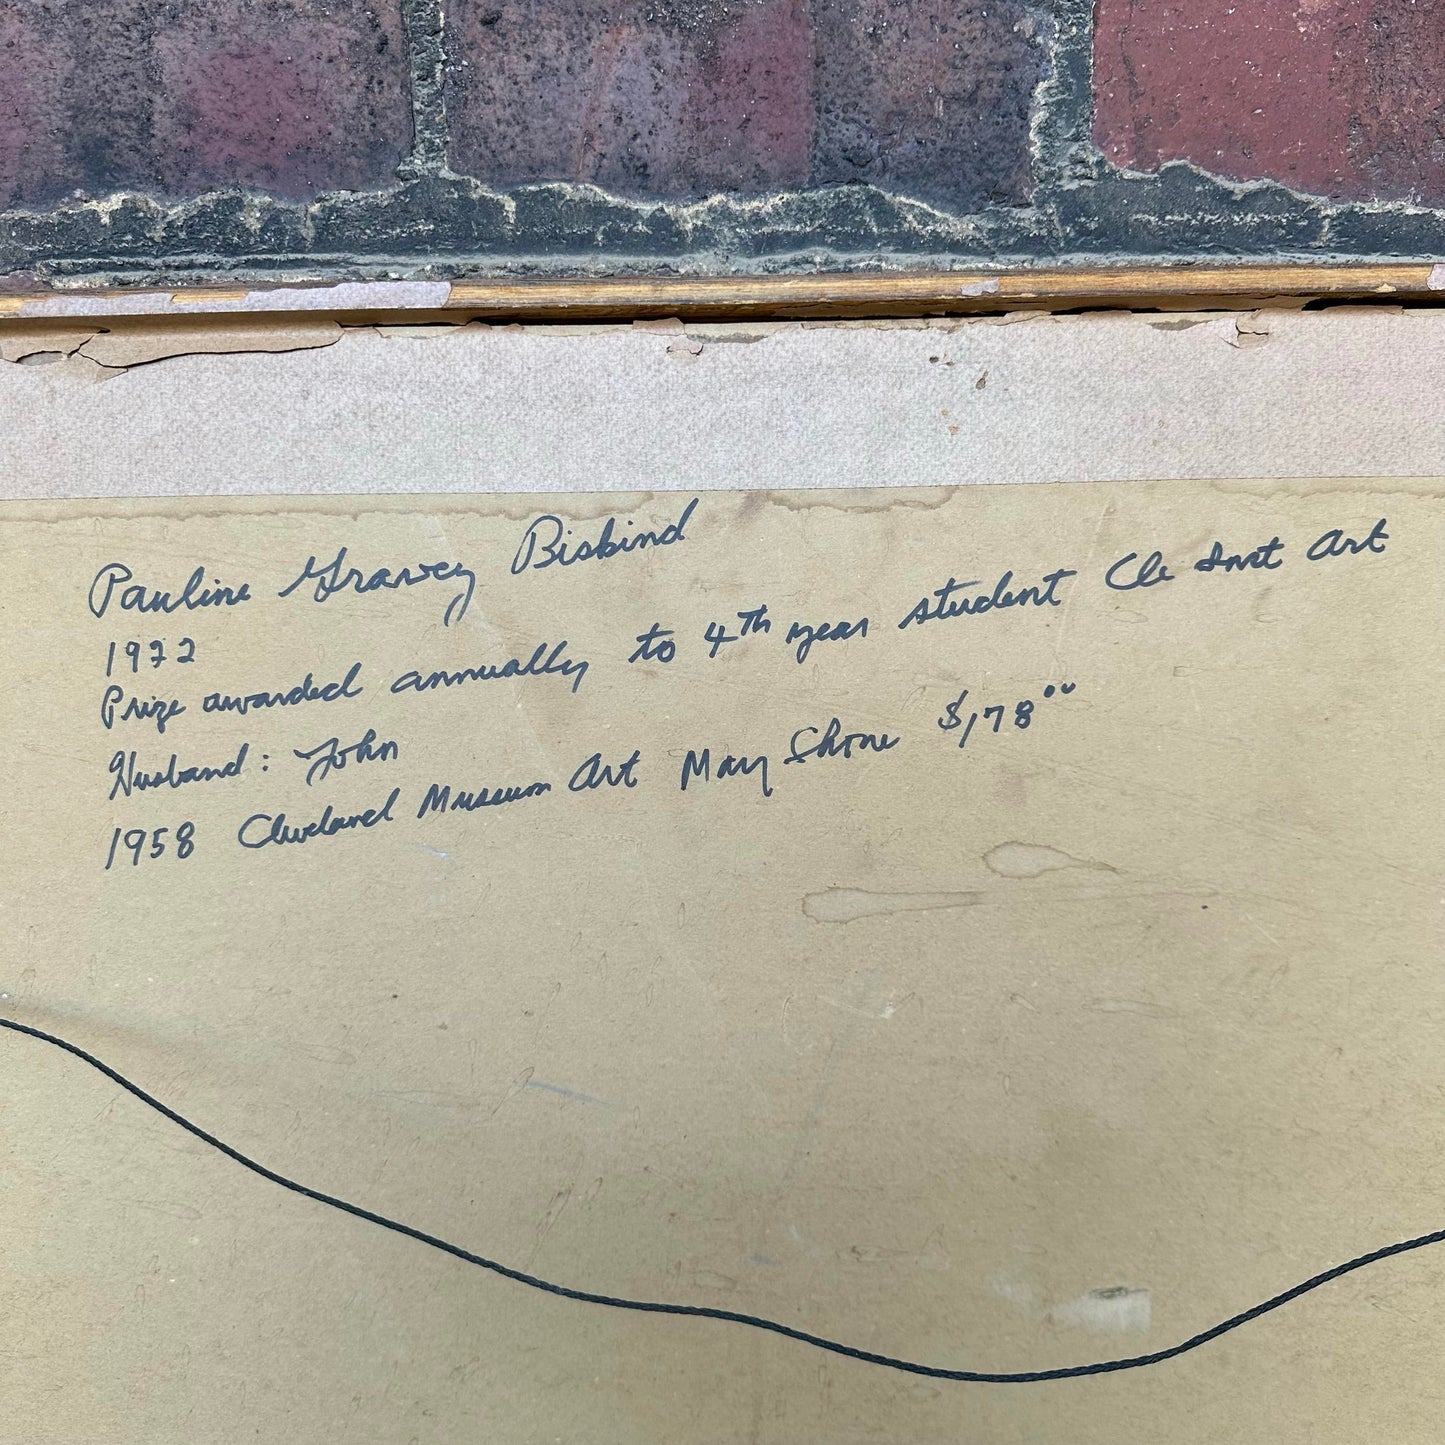 Pauline Gravey Biskind
1972
Prize awarded annually to 4th year student Cle Inst Art
Husband: John
1958 Cleveland Museum Art May Show $178.00